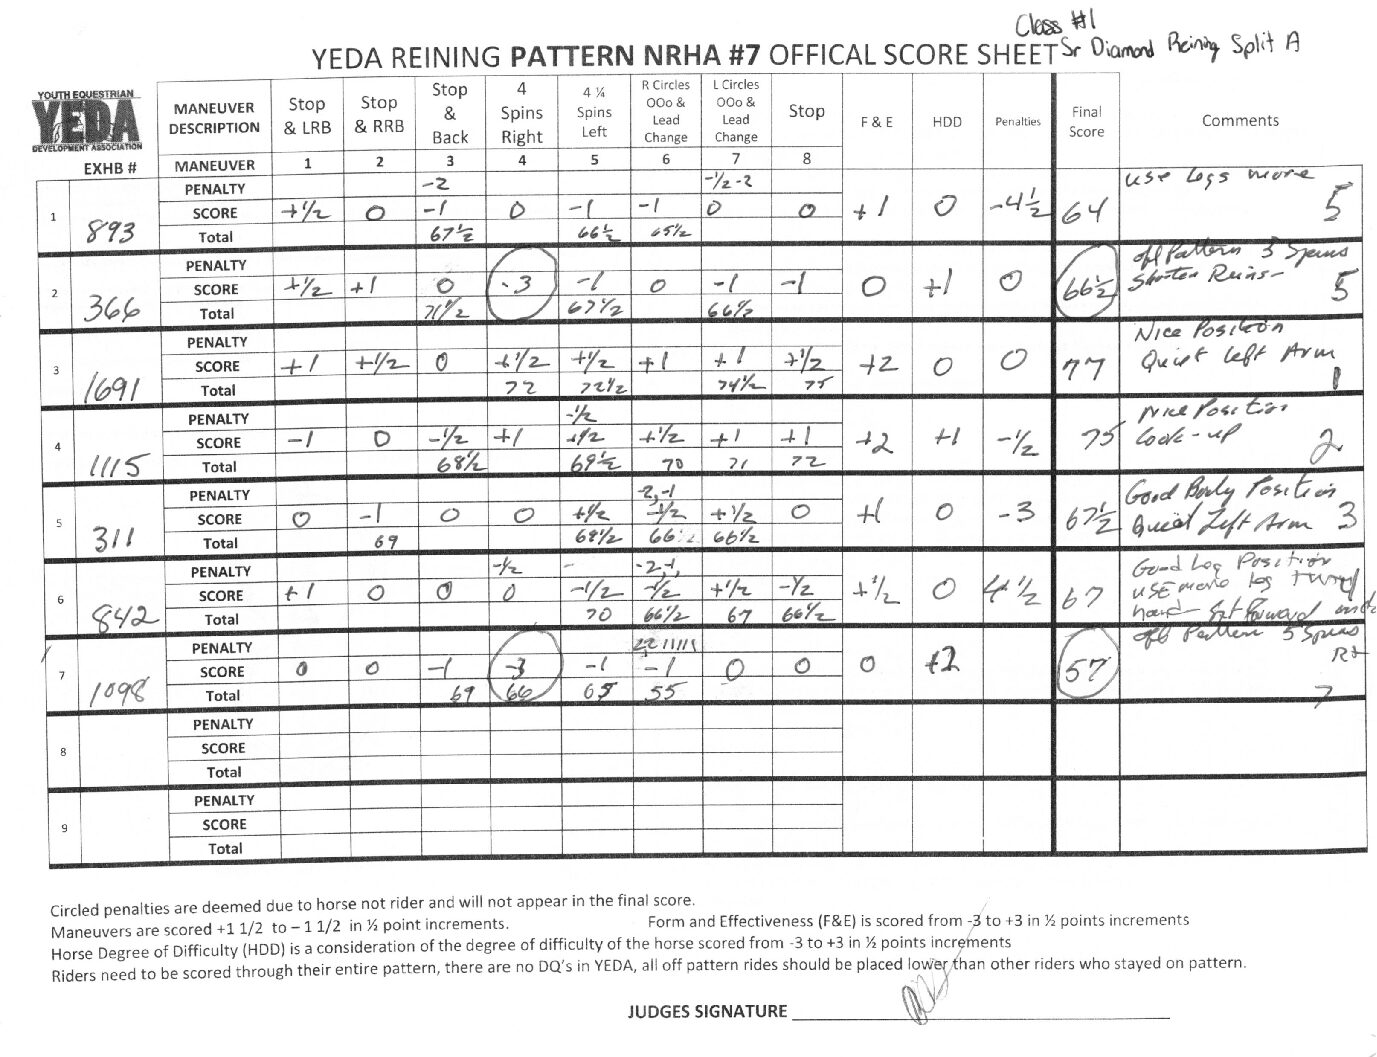 Class #1
YEDA REINING PATTERN NRHA #7 OFFICAL SCORE SHEET Sr Diamond Reining Split A
YOUTH EQUESTRIAN
YEDA
DEVELOPMENT ASSOCIATION
EXHB # MANEUVER DESCRIPTION Stop & LRB Stop & RRB Stop & Back 4 Spins Right 4 ¼ Spins Left R Circles OOo & Lead Change L Circles OOo & Lead Change Stop F & E HDD Penalties Final Score Comments
MANEUVER 1 2 3 4 5 6 7 8
1 893 PENALTY -2 -1/2 -2 use Legs more
SCORE +1/2 0 -1 0 -1 -1 0 0 +1 0 -4 1/2 64 5
Total 67 1/2 66 1/2 65 1/2
2 366 PENALTY off Pattern 5 Spins
SCORE +1/2 +1 0 -3 -1 0 -1 -1 0 +1 0 66 1/2 Shorten Reins- 5
Total 71 1/2 67 1/2 66 1/2
3 1691 PENALTY Nice Position
SCORE +1 +1/2 0 +1/2 +1/2 +1 +1 +1/2 +2 0 0 77 Quiet left Arm
Total 72 72 1/2 74 1/2 75 1
4 1115 PENALTY -1/2 Nice Position
SCORE -1 0 -1/2 +1 +1/2 +1/2 +1 +1 +2 +1 -1/2 75 look-up
Total 68 1/2 69 1/2 70 71 72 2
5 311 PENALTY -2,-1 Good Body Position
SCORE 0 -1 0 0 +1/2 -1/2 +1/2 0 +1 0 -3 67 1/2 Quiet Left Arm 3
Total 69 68 1/2 66 1/2 66 1/2
6 842 PENALTY -1/2 - -2,-1, Good Leg Position
SCORE +1 0 0 0 -1/2 -1/2 +1/2 -1/2 +1/2 0 4 1/2 67 use more leg
Total 70 66 1/2 67 66 1/2 hand-
7 1098 PENALTY 22 11111 off Pattern 5 Spins
SCORE 0 0 -1 -3 -1 -1 0 0 0 +2 57 Rt
Total 69 66 65 55 7
8 PENALTY
SCORE
Total
9 PENALTY
SCORE
Total
Circled penalties are deemed due to horse not rider and will not appear in the final score.
Maneuvers are scored +1 1/2 to – 1 1/2 in ½ point increments. Form and Effectiveness (F&E) is scored from -3 to +3 in ½ points increments
Horse Degree of Difficulty (HDD) is a consideration of the degree of difficulty of the horse scored from -3 to +3 in ½ points increments
Riders need to be scored through their entire pattern, there are no DQ's in YEDA, all off pattern rides should be placed lower than other riders who stayed on pattern.
JUDGES SIGNATURE